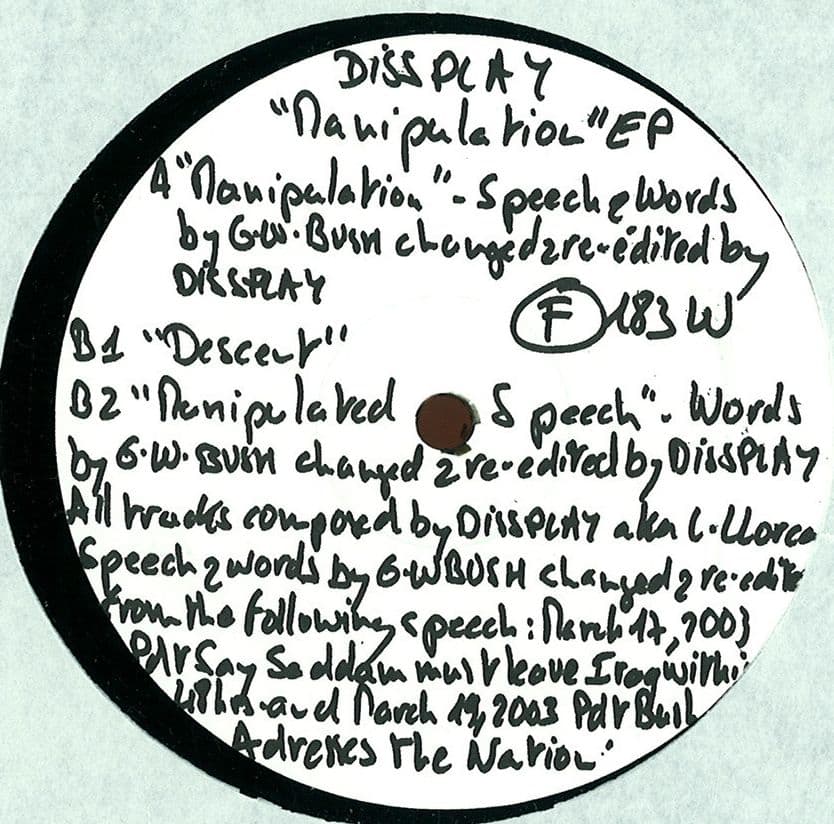 DISSPLAY
"Manipulation" EP
A "Manipulation" - Speech & Words
by G.W. BUSH changed & re-edited by
DISSPLAY
F 183 W
B1 "Descent"
B2 "Manipulated Speech" - Words
by G.W. BUSH changed & re-edited by DISSPLAY
All tracks composed by DISSPLAY aka L. LLorca
Speech & words by G.W BUSH changed & re-edite
from the following speech: March 17, 2003
Pdt Say Saddam must leave Iraq within
48 hrs and March 19, 2003 Pdt Bush
Adresses the Nation.